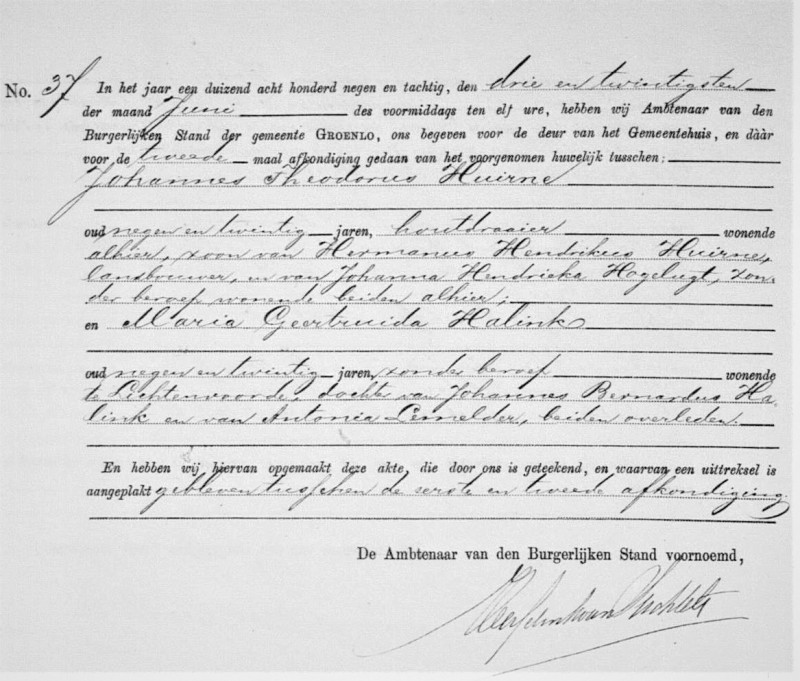 No. 37 In het jaar een duizend acht honderd negen en tachtig, den drie en twintigsten
der maand Juni des voormiddags ten elf ure, hebben wij Ambtenaar van den
Burgerlijken Stand der gemeente GROENLO, ons begeven voor de deur van het Gemeentehuis, en dààr
voor de tweede maal afkondiging gedaan van het voorgenomen huwelijk tusschen:
Johannes Theodorus Huirne
oud negen en twintig jaren, houtdraaier wonende
alhier, zoon van Hermanus Hendrikus Huirne,
lansbouwer, en van Johanna Hendrieka Hogelugt, zon-
der beroep wonende beiden alhier;
en Maria Geertruida Halink
oud negen en twintig jaren, zonder beroep wonende
te Lichtenvoorde, dochter van Johannes Bernardus Ha-
link en van Antonia Lemelder, beiden overleden.
En hebben wij hiervan opgemaakt deze akte, die door ons is geteekend, en waarvan een uittreksel is
aangeplakt gebleven tusschen de eerste en tweede afkondiging.
De Ambtenaar van den Burgerlijken Stand voornoemd,